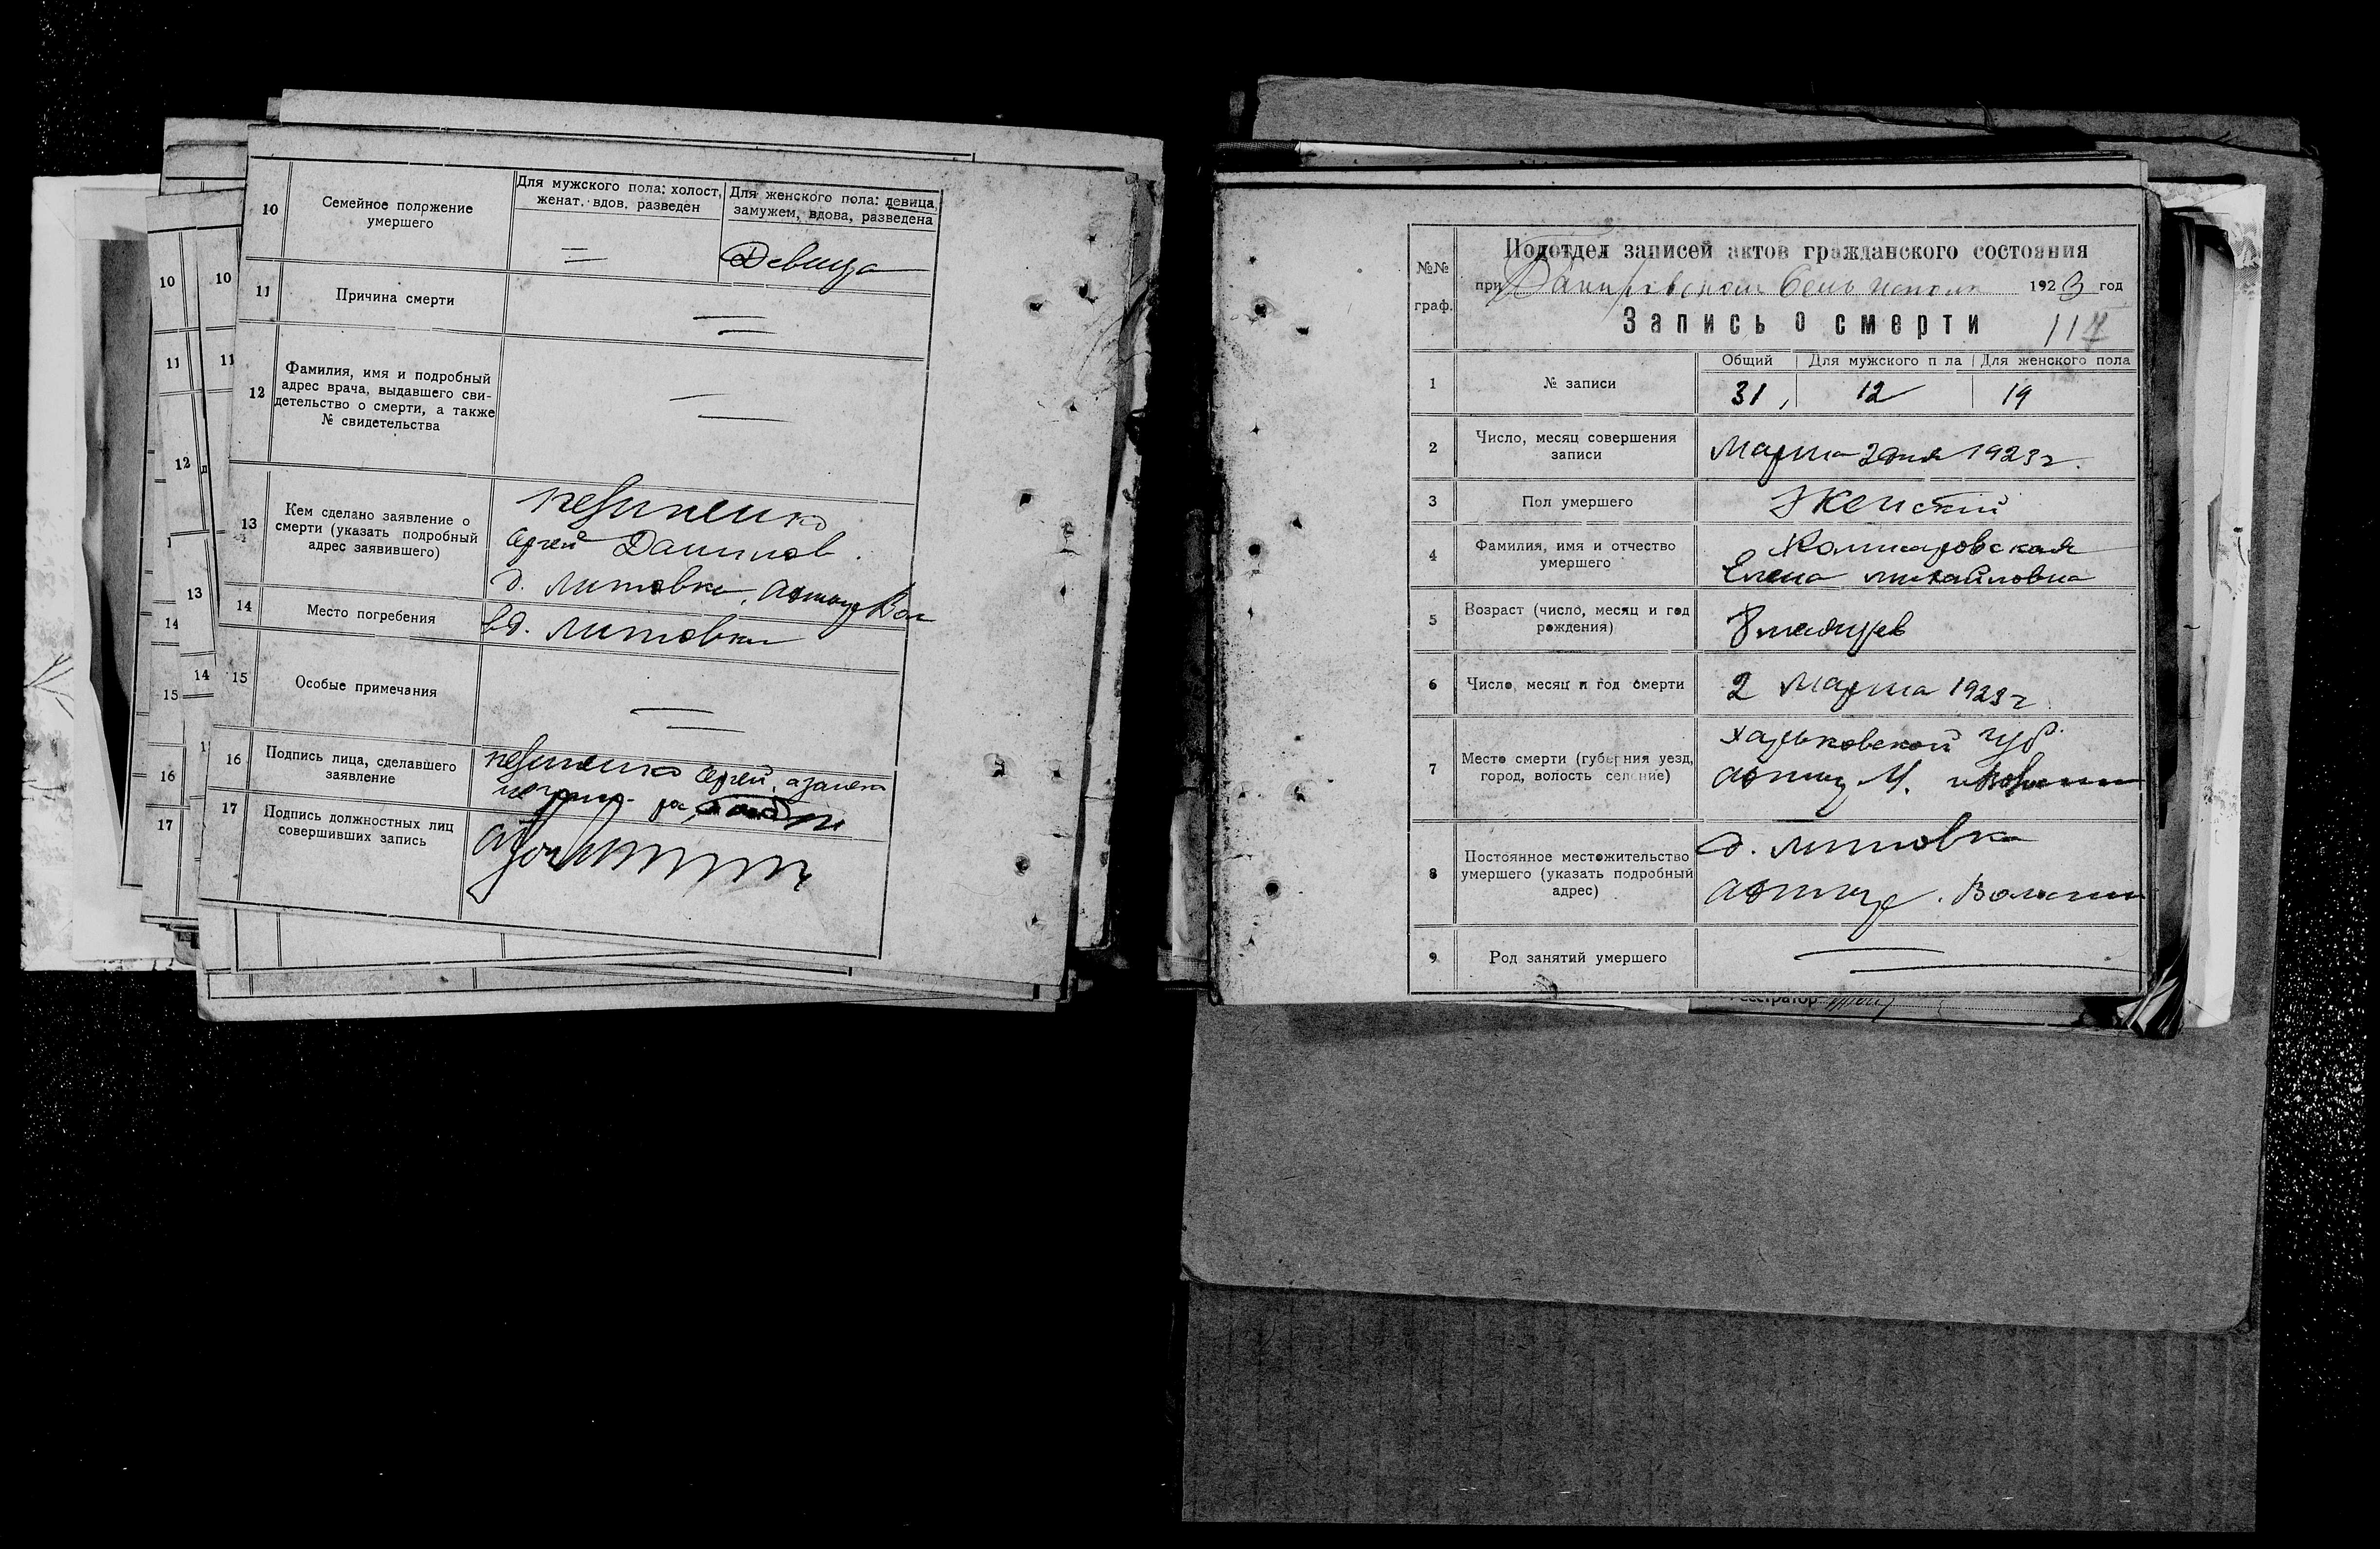 10
Семейное положение
умершего
Для мужского пола: холост,
женат, вдов, разведен
Для женского пола: девица,
замужем, вдова, разведена
Девица
11
Причина смерти
12
Фамилия, имя и подробный
адрес врача, выдавшего сви-
детельство о смерти, а также
№ свидетельства
13
Кем сделано заявление о
смерти (указать подробный
адрес заявившего)
Сергей Данилов.
д. Литовка,
14
Место погребения
в д. Литовки
15
Особые примечания
16
Подпись лица, сделавшего
заявление
Сергей, а за него
17
Подпись должностных лиц
совершивших запись
10
10
11
11
12
13
14
14
15
16
17
№№
граф.
Подотдел записей актов гражданского состояния
при 1923 год
Запись о смерти 117
1
№ записи
Общий
Для мужского п ла
Для женского пола
31,
12
19
2
Число, месяц совершения
записи
Марта 2 дня 1923 г.
3
Пол умершего
Женский
4
Фамилия, имя и отчество
умершего
Елена Михайловна
5
Возраст (число, месяц и год
рождения)
8 месяцев
6
Число, месяц и год смерти
2 Марта 1923 г
7
Место смерти (губерния уезд,
город, волость селение)
Харьковской губ.
8
Постоянное местожительство
умершего (указать подробный
адрес)
д. Литовка
9
Род занятий умершего